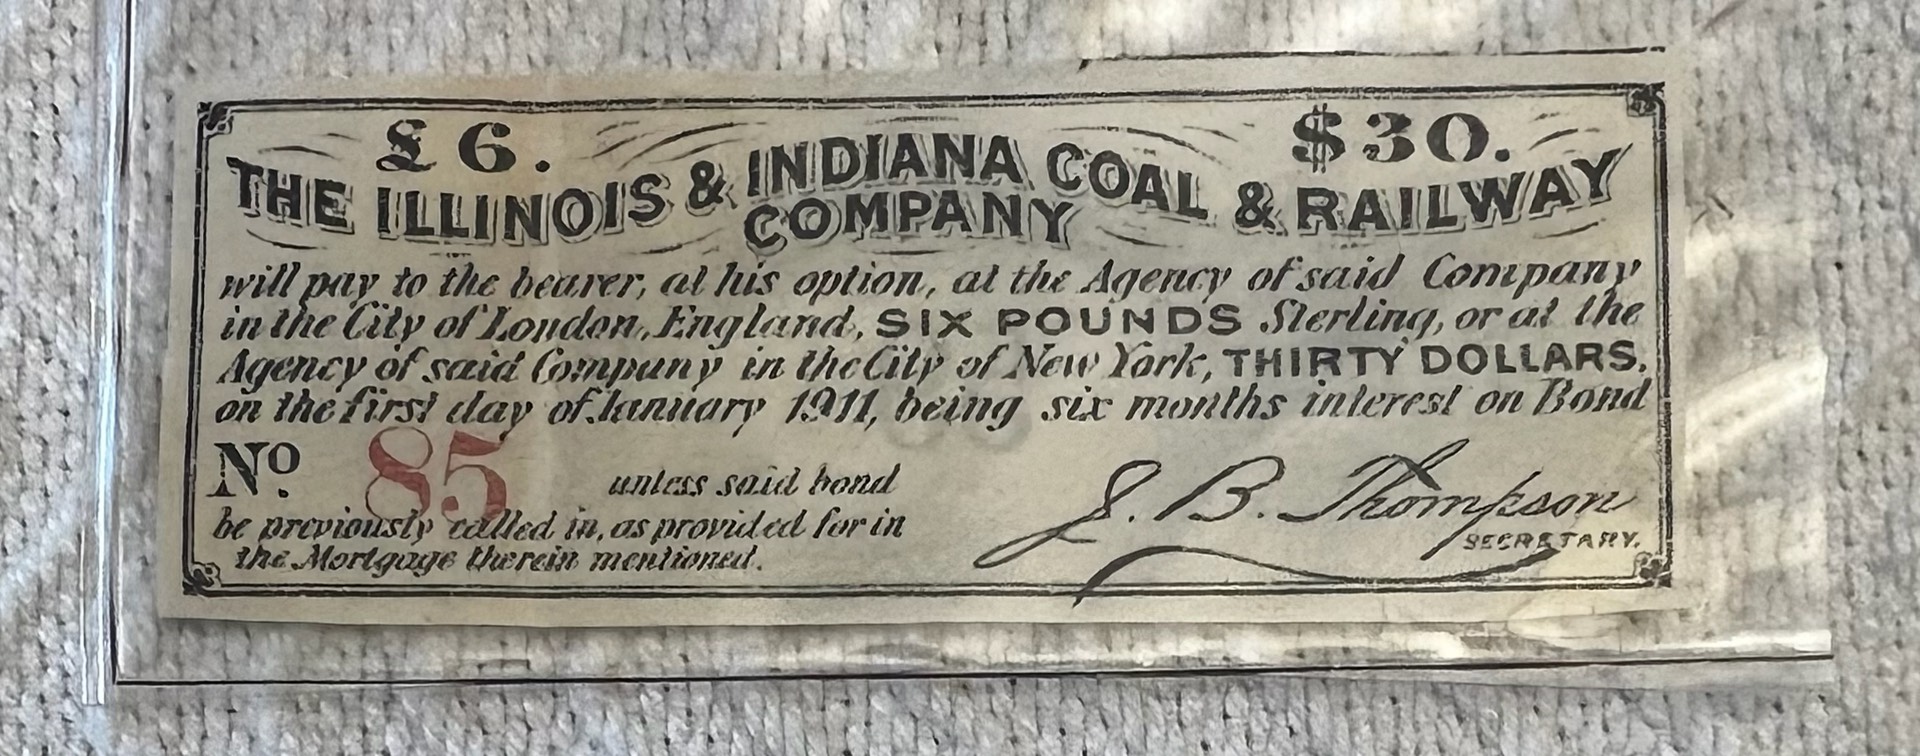 £ 6. $ 30.
THE ILLINOIS & INDIANA COAL & RAILWAY
COMPANY
will pay to the bearer, at his option, at the Agency of said Company
in the City of London, England, SIX POUNDS Sterling, or at the
Agency of said Company in the City of New York, THIRTY DOLLARS,
on the first day of January 1911, being six months interest on Bond
No. 85 unless said bond
be previously called in, as provided for in
the Mortgage therein mentioned.
J. B. Thompson
SECRETARY.